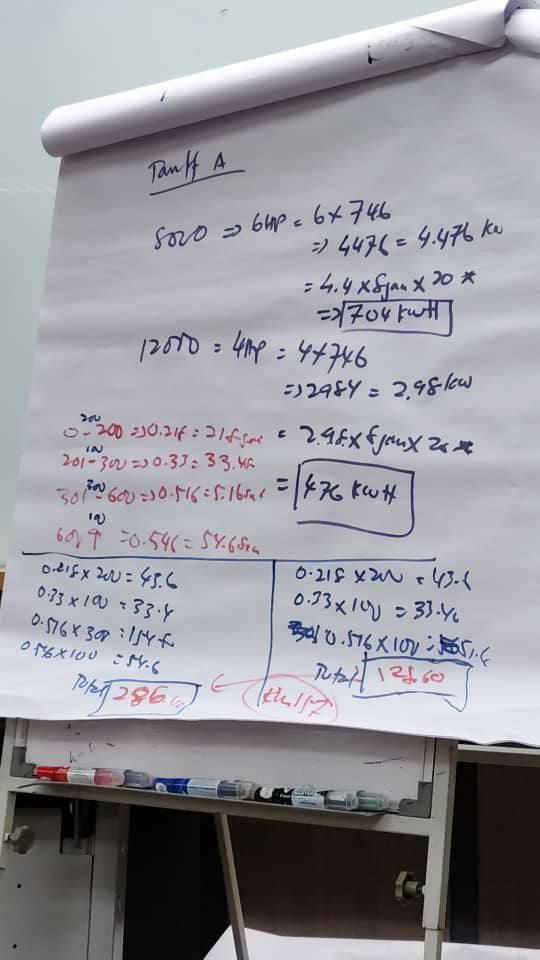 Tariff A
5020 => 6HP = 6 x 746
=> 4476 = 4.476 kW
= 4.4 x 8jam x 20
=> 704 kWH
12000 = 4Hp = 4 x 746
=> 2984 = 2.98 kW
= 2.98 x 8jam x 20
= 476 KWH
200
0-200 => 0.218 = 21.8 sen
100
201-300 => 0.33 = 33.4
300
301-600 => 0.516 = 5.16
100
601 ↑ = 0.546 = 54.6 sen
0.218 x 200 = 43.6
0.33 x 100 = 33.4
0.516 x 300 = 154
0.546 x 100 = 54.6
Total 286
0.218 x 200 = 43.6
0.33 x 100 = 33.4
0.516 x 100 = 51.6
Total 128.60